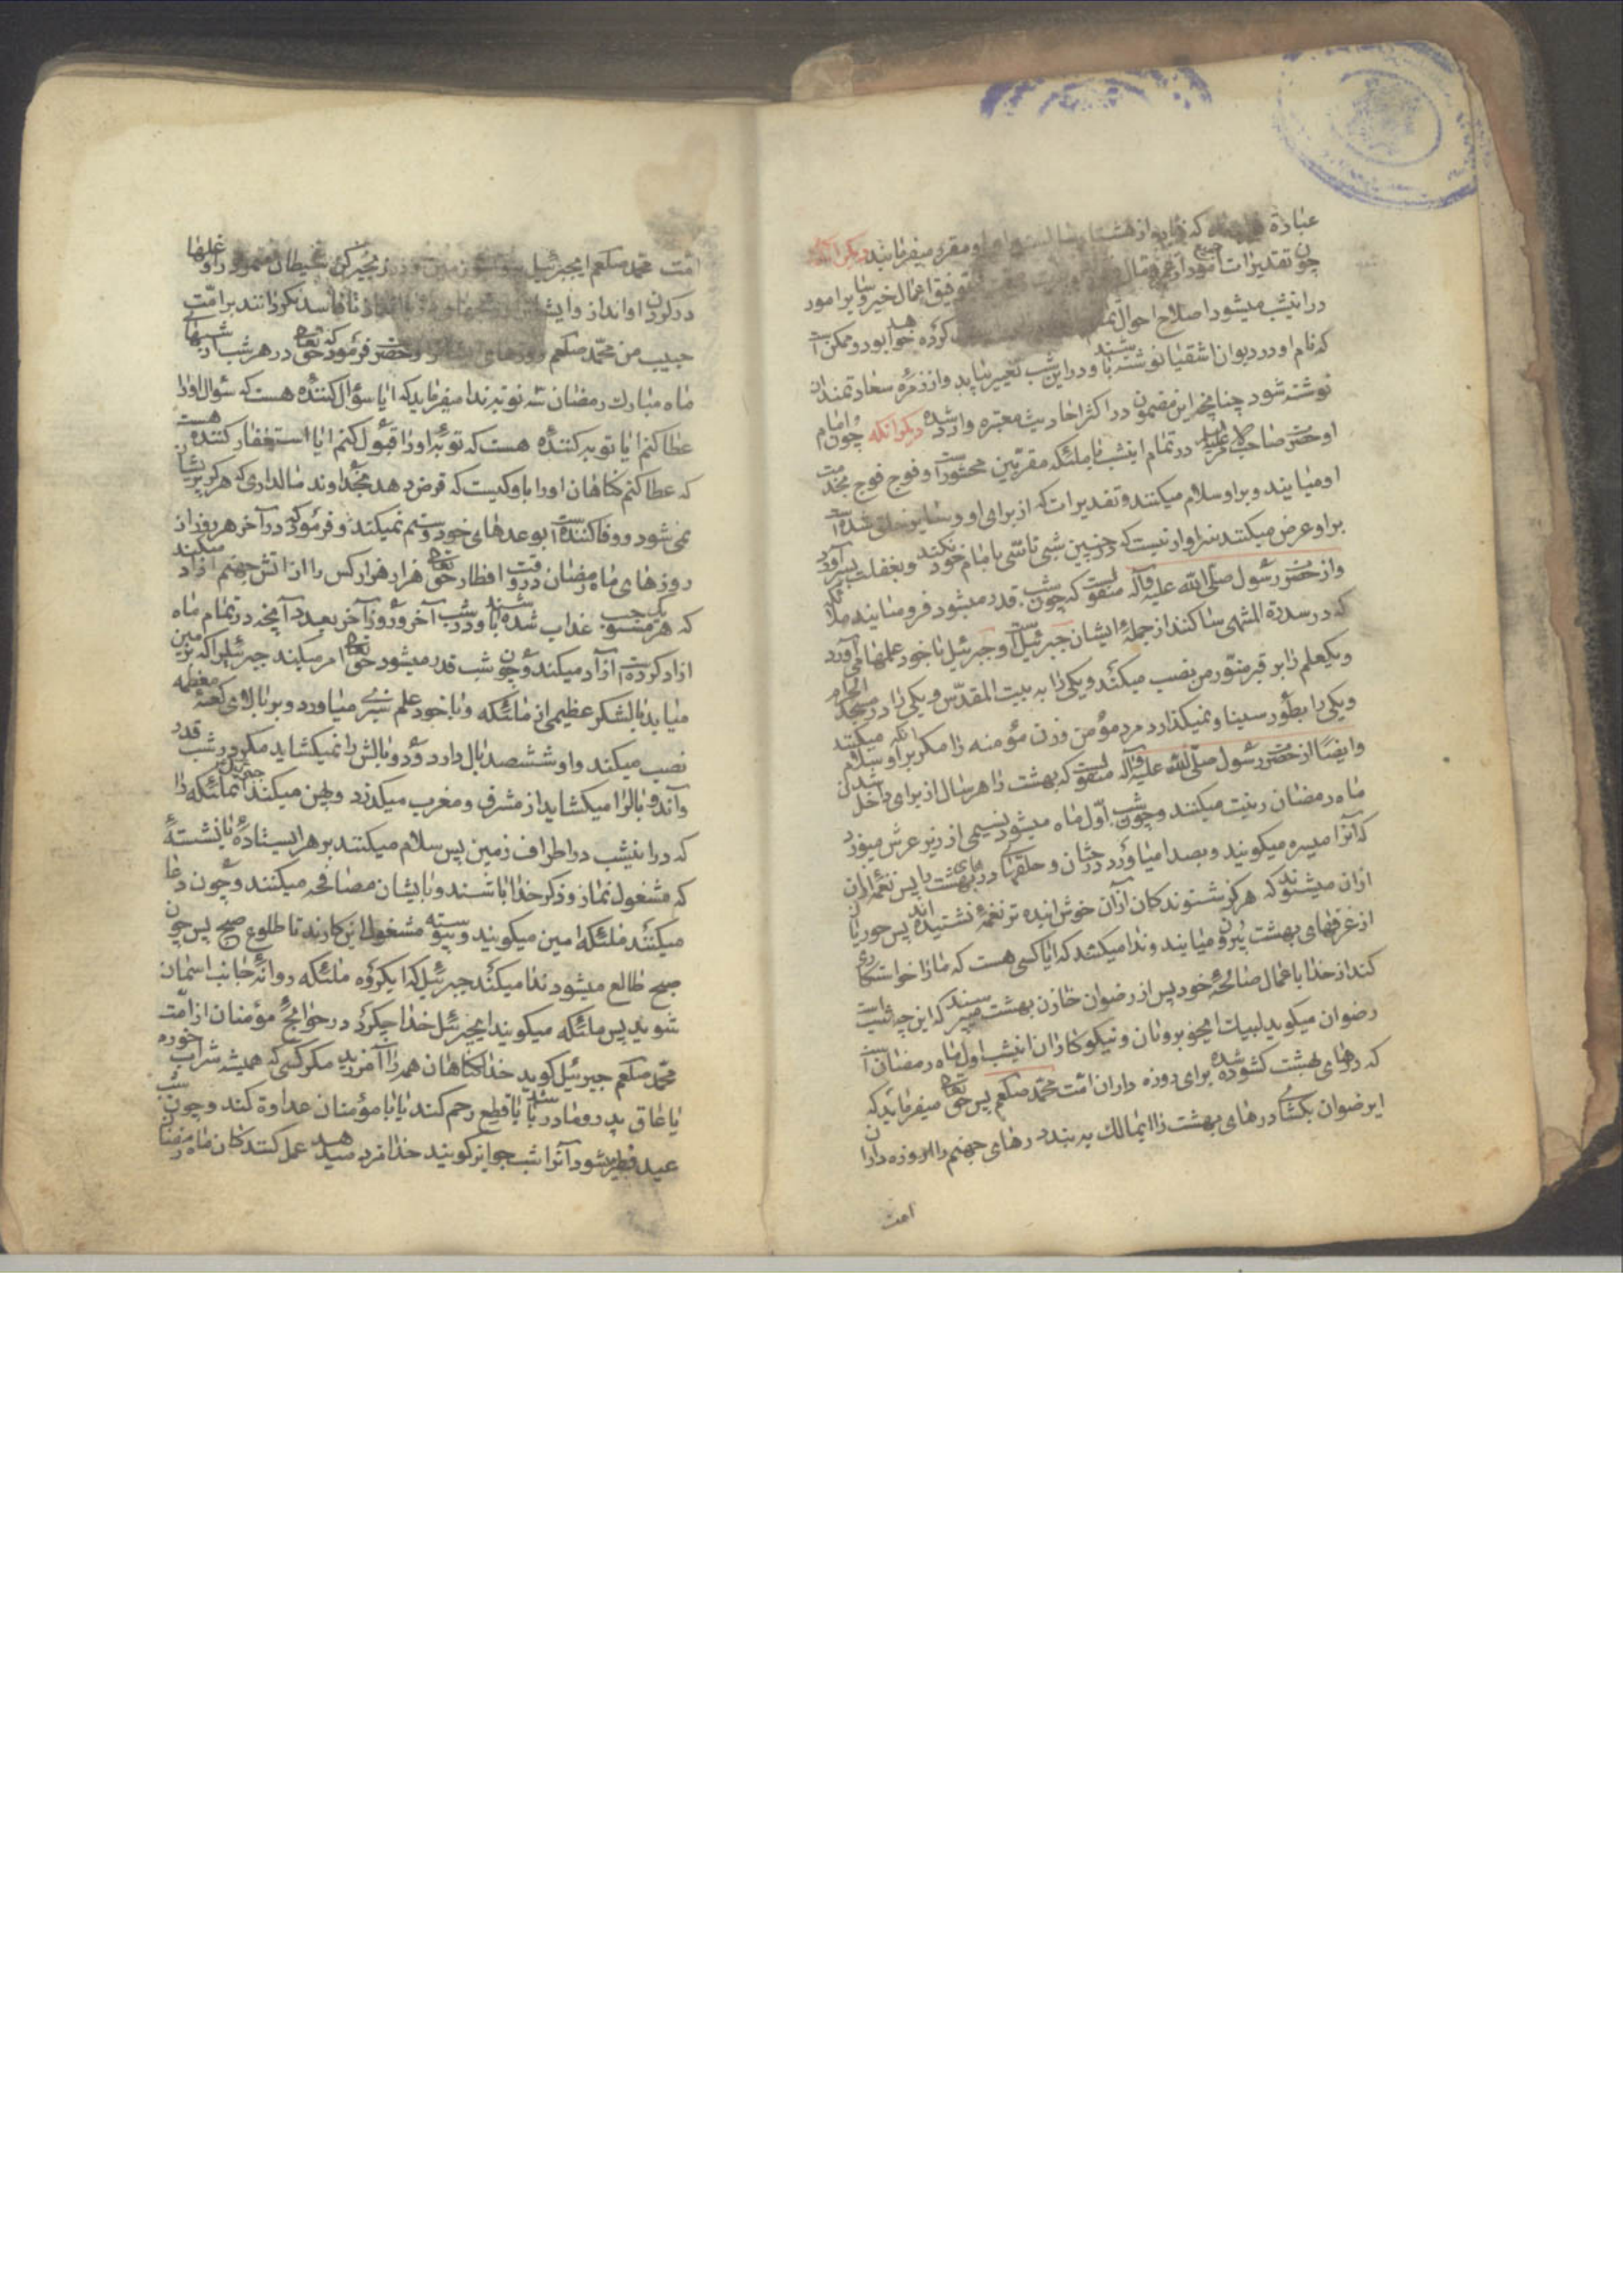 عبادة که زیاده از هشتاد سال او مقرر میفرمایند دیگر آنکه
چون تقدیرات جمیع امور از عمر و مال توفیق اعمال خیر و سایر امور
در اینشب میشود اصلاح احوال کرده خواهد بود و ممکن است
که نام او در دیوان اشقیا نوشته شده باشد و در این شب تغییر نیابد و از زمرهٔ سعادتمندان
نوشته شود چنانچه این مضمون در اکثر احادیث معتبره وارد شده دیگر آنکه چون امام
او حضرت صاحب الامر علیه السلام در تمام اینشب با ملئکه مقربین محشور است و فوج فوج بخدمت
او میایند و بر او سلام میکنند و تقدیرات که از برای او و سایر خلق شده است
بر او عرض میکنند سزاوار نیست که در چنین شبی تاسّی بامام خود نکند و بغفلت بسر آورد
و از حضرت رسول صلّی الله علیه وآله منقولست که چون شب قدر میشود فرو میایند ملائکه
که در سدرة المنتهی ساکنند از جملهٔ ایشان جبرئیل است و جبرئیل با خود علمها می آورد
و یکعلم را بر قبر منوّر من نصب میکند و یکی را به بیت المقدّس و یکی را در مسجد الحرام
و یکی را بطور سینا و نمیکذارد مرد مؤمن و زن مؤمنه را مکر بر او سلام میکنند
و ایضًا از حضرت رسول صلّی الله علیه وآله منقولست که بهشت را هر سال از برای داخل شدن
ماه رمضان زینت میکنند و چون شب اوّل ماه میشود نسیمی از زیر عرش میوزد
که آنرا مثیره میکویند و بصدا میاورد درختان و حلقهای درهای بهشت را پس نغمهٔ از آن
از آن میشنوند که هرکز شنوندکان از آن خوش آینده تر نغمهٔ نشنیده اند پس حوریان
از غرفهای بهشت بیرون میایند و ندا میکنند که ایا کسی هست که ما را خواستکاری
کند از خدا با عمال صالحهٔ خود پس از رضوان خازن بهشت میپرسند که این چه شب است
رضوان میکوید لبیک ایخوبرویان و نیکوکاران اینشب اول ماه رمضان است
که درهای بهشت کشوده شده برای روزه داران امّت محمّد صلعم پس حقتعالی میفرماید که
ایرضوان بکشای درهای بهشت را ایمالک به بند درهای جهنم را از روزه داران
امت
امّت محمّد صلعم ایجبرئیل برو زمین و در زنجیر کن شیطان متمرد را و غلها
در کردن او انداز و ایشان را تا فاسد نکردانند بر امّت
حبیب من محمّد صلعم روزهای ایشان را و حضرت فرمود که حقتعالی در هر شب از شبهای
ماه مبارک رمضان سه نوبه ندا میفرماید که ایا سؤال کنندهٔ هست که سؤال او را
عطا کنم ایا توبه کنندهٔ هست که توبهٔ او را قبول کنم ایا استغفار کنندهٔ هست
که عطا کنم کناهان او را با و کیست که قرض دهد بخداوند مالداری که هرکز پریشان
نمی شود و وفا کننده است بوعدهای خود و ستم نمیکند و فرمود که در آخر هر روز از
روزهای ماه رمضان در وقت افطار حقتعالی هزار هزار کس را از اتش جهنم آزاد میکند
که هر یک مستوجب عذاب شده باشند و در شب آخر و روز آخر بعدد آنچه در تمام ماه
ازاد کرده است آزاد میکند و چون شب قدر میشود حقتعالی امر میکند جبرئیل را که بزمین
میاید با لشکر عظیمی از ملئکه و با خود علم سبزی میاورد و بر بالای کعبهٔ معظمه
نصب میکند و او ششصد بال دارد و دو بالش را نمیکشاید مکر در شب قدر
و آندو بالرا میکشاید از مشرق و مغرب میکذرد و پهن میکند جبرئیل آنملئکه را
که در اینشب در اطراف زمین پس سلام میکنند بر هر ایستادهٔ یا نشستهٔ
که مشغول نماز و ذکر خدا باشند و با ایشان مصافحه میکنند و چون دعا
میکنند ملئکه امین میکویند و پیوسته مشغول این کارند تا طلوع صبح پس چون
صبح طالع میشود ندا میکند جبرئیل که ایکروه ملئکه روانهٔ جانب اسمان
شوید پس ملئکه میکویند ایجبرئیل خدا چکرد در حوائج مؤمنان از امّت
محمّد صلعم جبرئیل کوید خدا کناهان همه را آمرزید مکر کسی که همیشه شراب خورد
یا عاق پدر و مادر باشد یا قطع رحم کند یا با مؤمنان عداوة کند و چون شب
عید فطر شود آنرا شب جوایز کویند خدا مزد میدهد عمل کنندکان ماه رمضان